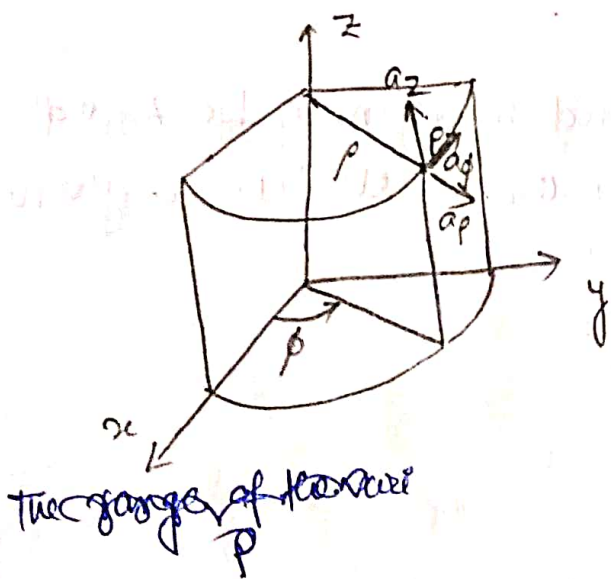 z
a_z
ρ
P
a_ϕ
a_ρ
y
ϕ
x
The range of the
ρ